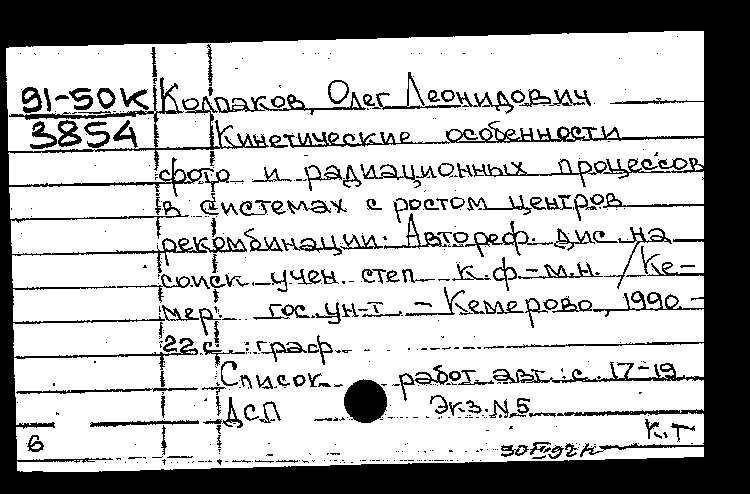 91-50К Колпаков, Олег Леонидович
3854 Кинетические особенности
фото и радиационных процессов
в системах с ростом центров
рекомбинации. Автореф. дис. на
соиск. учен. степ. к.ф.-м.н. / Ке-
мер. гос. ун-т. – Кемерово, 1990. –
22 с. : граф.
Список работ авт.: с. 17-19
ДСП Экз. N 5
К.Т
6